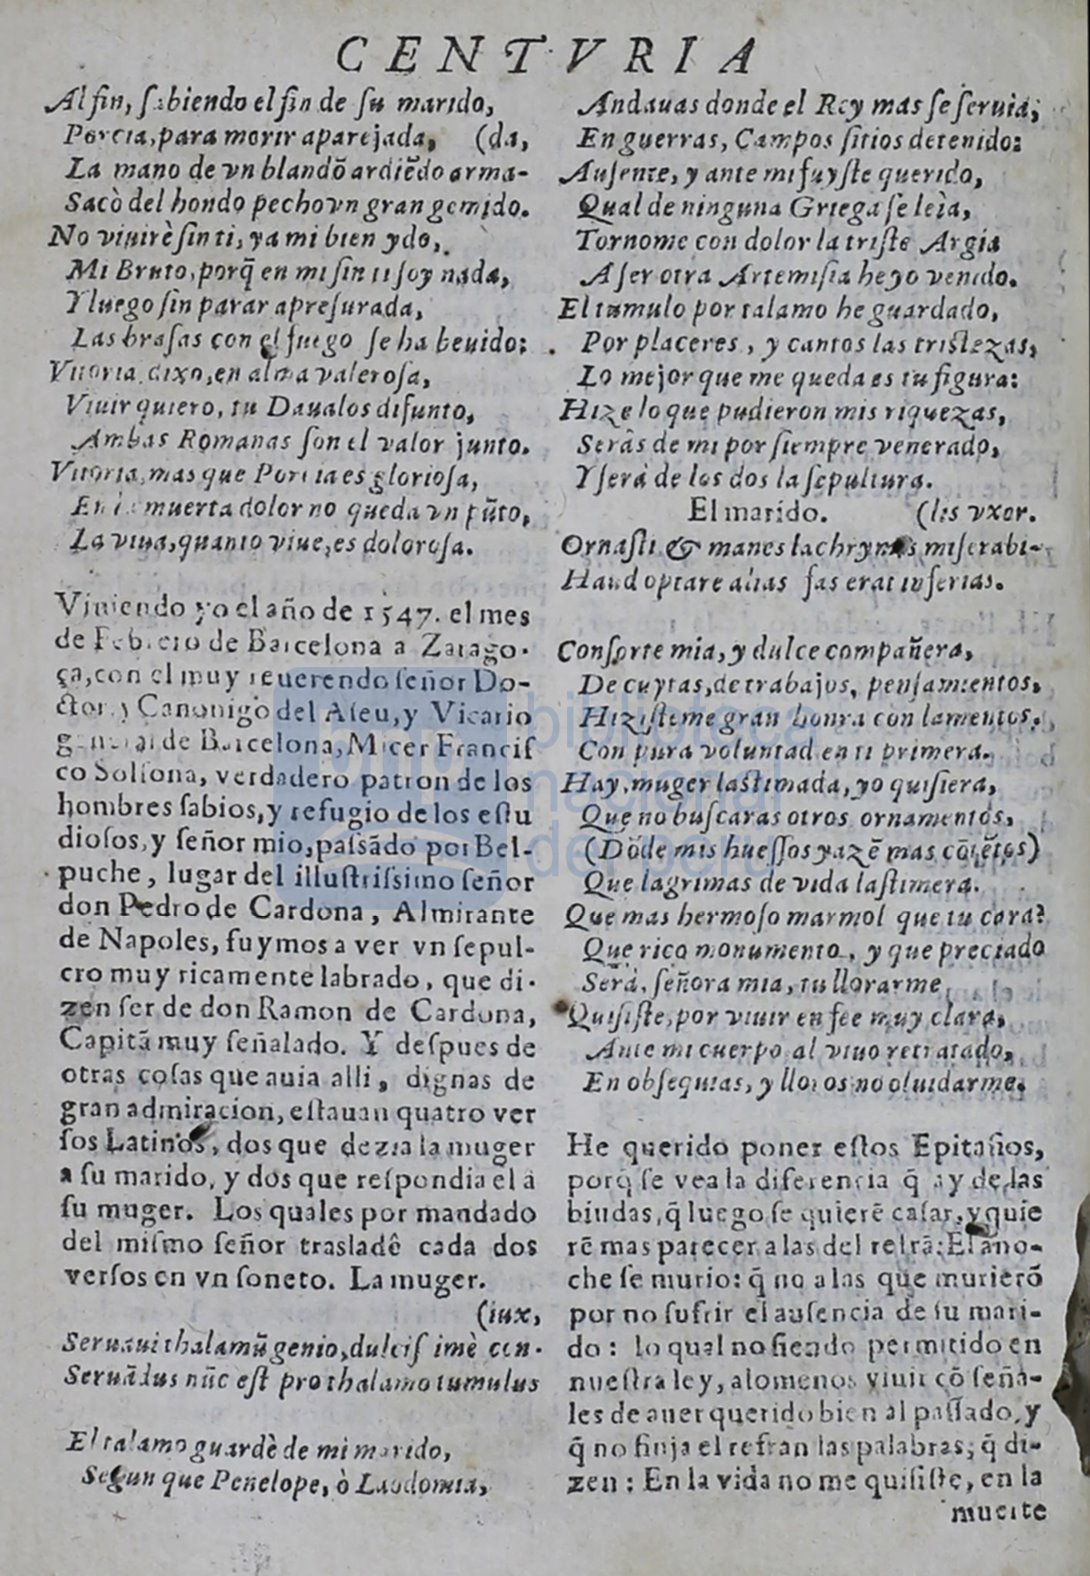 CENTVRIA
Al fin, sabiendo el fin de su marido,
Porcia, para morir aparejada, (da,
La mano de vn blandõ ardiẽdo arma-
Sacò del hondo pecho vn gran gemido.
No viuirè sin ti, ya mi bien ydo,
Mi Bruto, porq̃ en mi sin ti soy nada,
Y luego sin parar apresurada,
Las brasas con el fuego se ha beuido:
Vitoria dixo, en alma valerosa,
Viuir quiero, tu Daualos difunto,
Ambas Romanas son el valor junto.
Vitoria, mas que Porcia es gloriosa,
En la muerta dolor no queda vn pũto,
La viua, quanto viue, es dolorosa.
Viniendo yo el año de 1547. el mes
de Febrero de Barcelona a Zarago-
ça, con el muy reuerendo señor Do-
ctor y Canonigo del Aseu, y Vicario
general de Barcelona, Micer Francis
co Solsona, verdadero patron de los
hombres sabios, y refugio de los estu
diosos, y señor mio, passãdo por Bel-
puche, lugar del illustrissimo señor
don Pedro de Cardona, Almirante
de Napoles, fuymos a ver vn sepul-
cro muy ricamente labrado, que di-
zen ser de don Ramon de Cardona,
Capitã muy señalado. Y despues de
otras cosas que auia alli, dignas de
gran admiracion, estauan quatro ver
sos Latinos, dos que dezia la muger
a su marido, y dos que respondia el à
su muger. Los quales por mandado
del mismo señor trasladê cada dos
versos en vn soneto. La muger.
(iux,
Seruaui thalamũ genio, dulcis imè con-
Seruãdus nũc est pro thalamo tumulus
El talamo guardè de mi marido,
Segun que Penelope, ò Laodomia,
Andauas donde el Rey mas se seruia,
En guerras, Campos sitios detenido:
Ausente, y ante mi fuyste querido,
Qual de ninguna Griega se leìa,
Tornome con dolor la triste Argia
A ser otra Artemisia he yo venido.
El tumulo por talamo he guardado,
Por placeres, y cantos las tristezas,
Lo mejor que me queda es tu figura:
Hize lo que pudieron mis riquezas,
Seràs de mi por siempre venerado,
Y serà de los dos la sepultura.
El marido. (lis vxor.
Ornasti & manes lachrymis miserabi-
Haud optare alias fas erat inferias.
Consorte mia, y dulce compañera,
De cuytas, de trabajos, pensamientos,
Hizisteme gran honra con lamentos,
Con pura voluntad en ti primera.
Hay, muger lastimada, yo quisiera,
Que no buscaras otros ornamentos,
(Dõde mis huessos yazẽ mas cõtẽtos)
Que lagrimas de vida lastimera.
Que mas hermoso marmol que tu cara?
Que rico monumento, y que preciado
Serà, señora mia, tu llorarme,
Quisiste, por viuir en fee muy clara,
Ante mi cuerpo al viuo retratado,
En obsequias, y lloros no oluidarme.
He querido poner estos Epitafios,
porq̃ se vea la diferencia q̃ ay de las
biudas, q̃ luego se quierẽ casar, y quie
rẽ mas parecer a las del refrã: El ano-
che se murio: q̃ no a las que murierõ
por no sufrir el ausencia de su mari-
do: lo qual no siendo permitido en
nuestra ley, alomenos viuir cõ seña-
les de auer querido bien al passado, y
q̃ no finja el refran las palabras, q̃ di-
zen: En la vida no me quisiste, en la
muerte
biblioteca
nacional
del perú